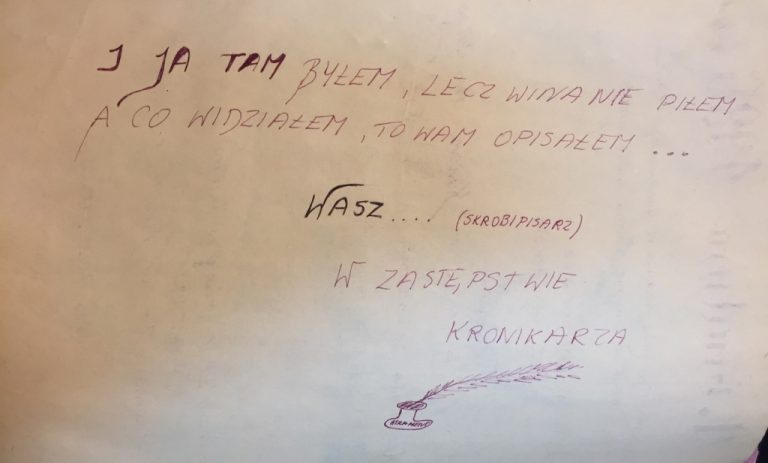 I JA TAM BYŁEM, LECZ WINA NIE PIŁEM
A CO WIDZIAŁEM, TO WAM OPISAŁEM...
WASZ.... (SKROBIPISARZ)
W ZASTĘPSTWIE
KRONIKARZA